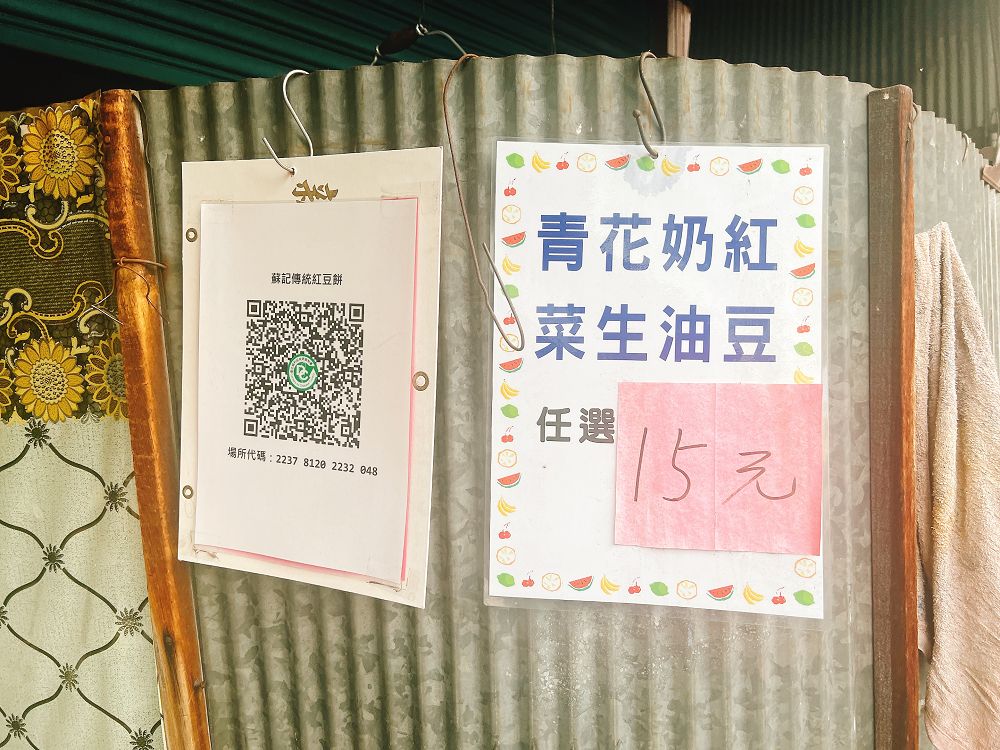 蘇記傳統紅豆餅
場所代碼：2237 8120 2232 048
青花奶紅
菜生油豆
任選
15元